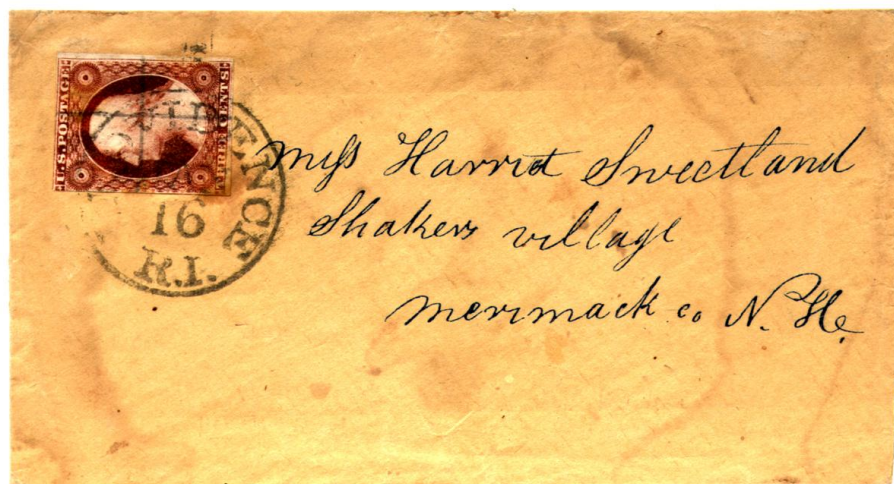 U.S. POSTAGE
THREE CENTS
16
R.I.
Miss Harriet Sweetland
Shakers village
Merrimack co N. H.